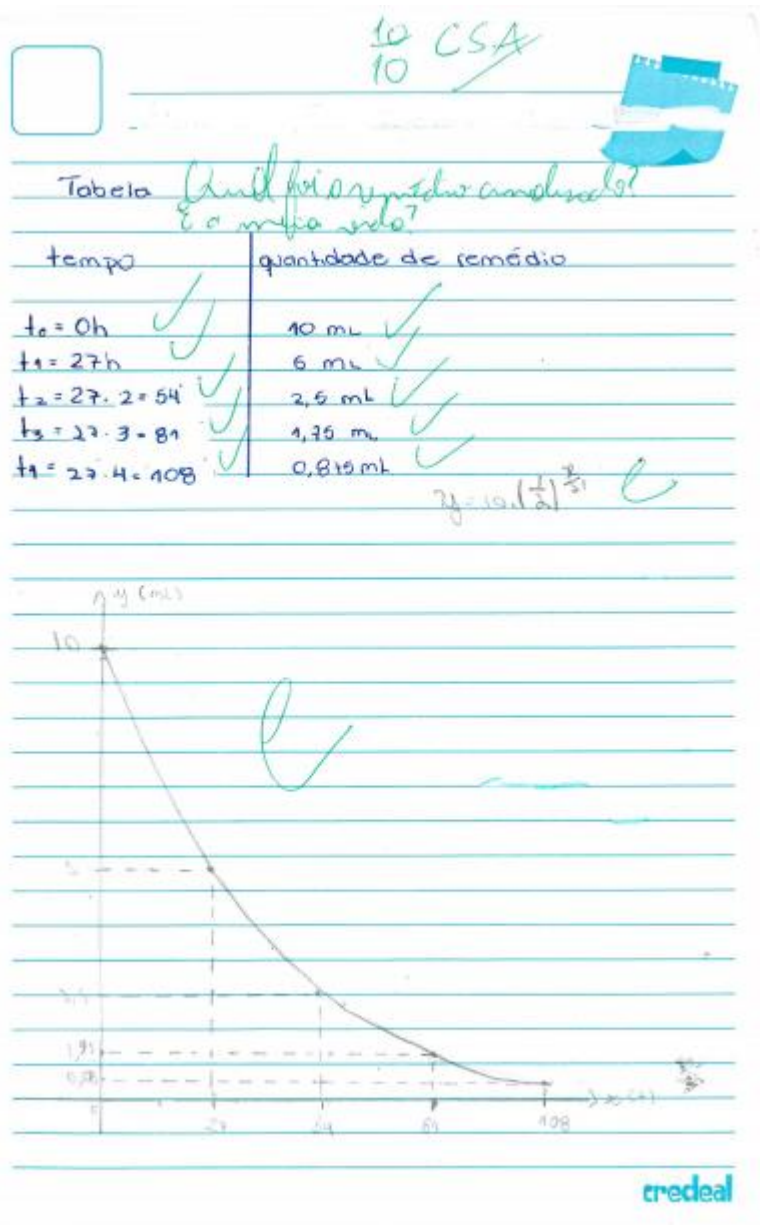 10/10 CSA
Tabela Qual foi o remédio analisado?
E a meia vida?
tempo quantidade de remédio
t₀ = 0h 10 mL
t₁ = 27h 5 mL
t₂ = 27. 2 = 54 2,5 mL
t₃ = 27. 3 = 81 1,75 mL
t₄ = 27. 4 = 108 0,875 mL
y = 10.(1/2)
y (mL)
10
5
0
27
108
credeal